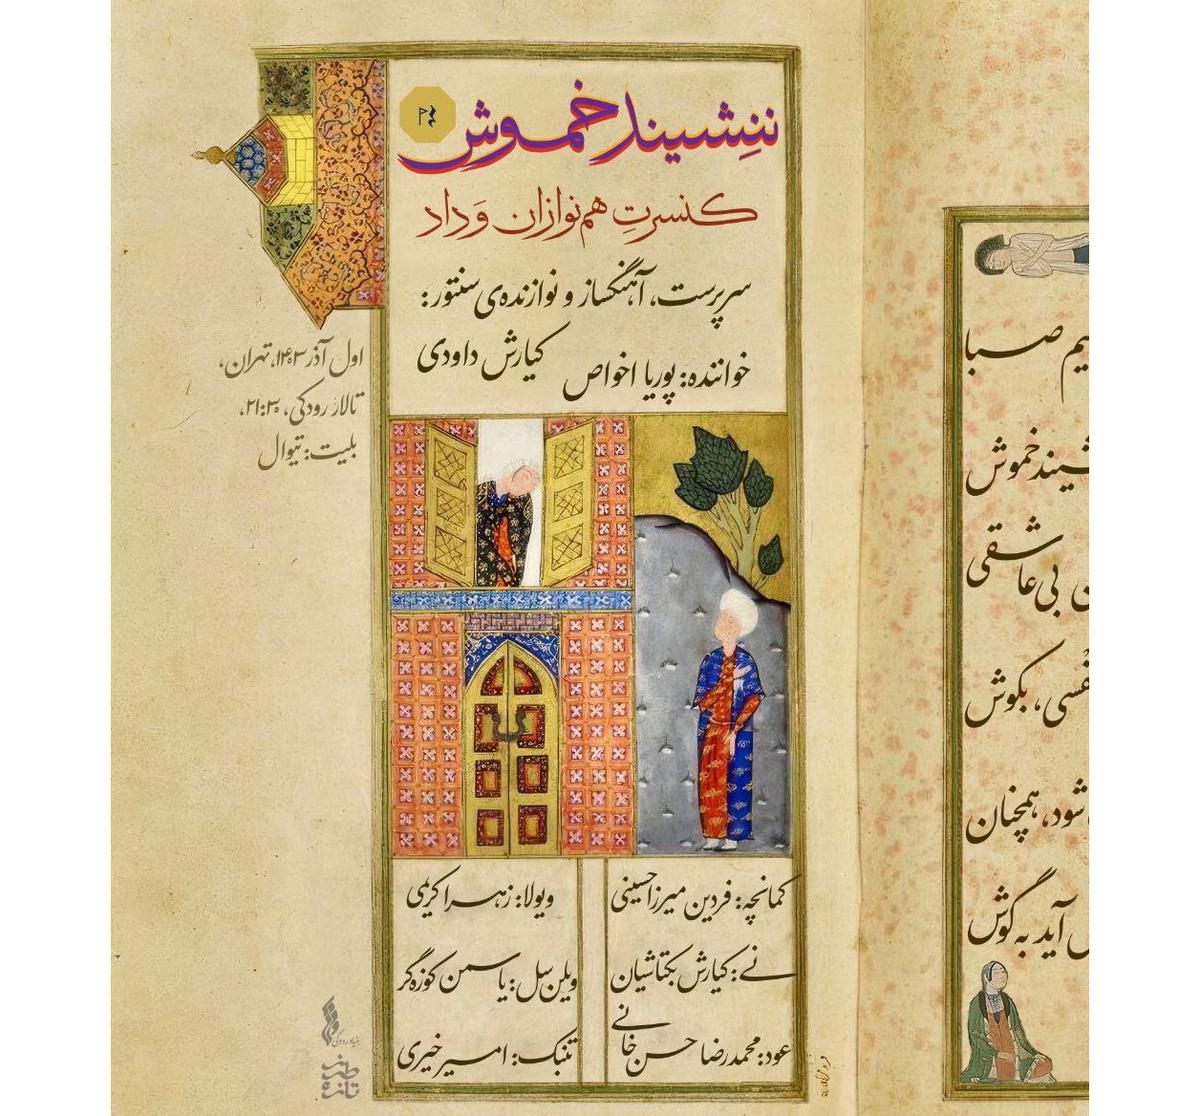 ننِشیند خموش
کنسرتِ هم‌نوازان وَداد
سرپرست، آهنگساز و نوازنده‌ی سنتور:
کیارش داودی
خواننده: پوریا اخواص
اول آذر ۱۴۰۳، تهران،
تالار رودکی، ۲۱:۳۰،
بلیت: تیوال
کمانچه: فردین میرزاحسینی
نے: کیارش بکتاشیان
عود: محمدرضا حسن‌خانے
ویولا: زهرا کریمی
ویلن‌سل: یاسمن کوزه‌گر
تنبک: امیر خیری
بنیاد رودکی
یم صبا
شیند خموش
ن بی‌عاشقی
نفسی، بکوش
شود، همچنان
آید به گوش